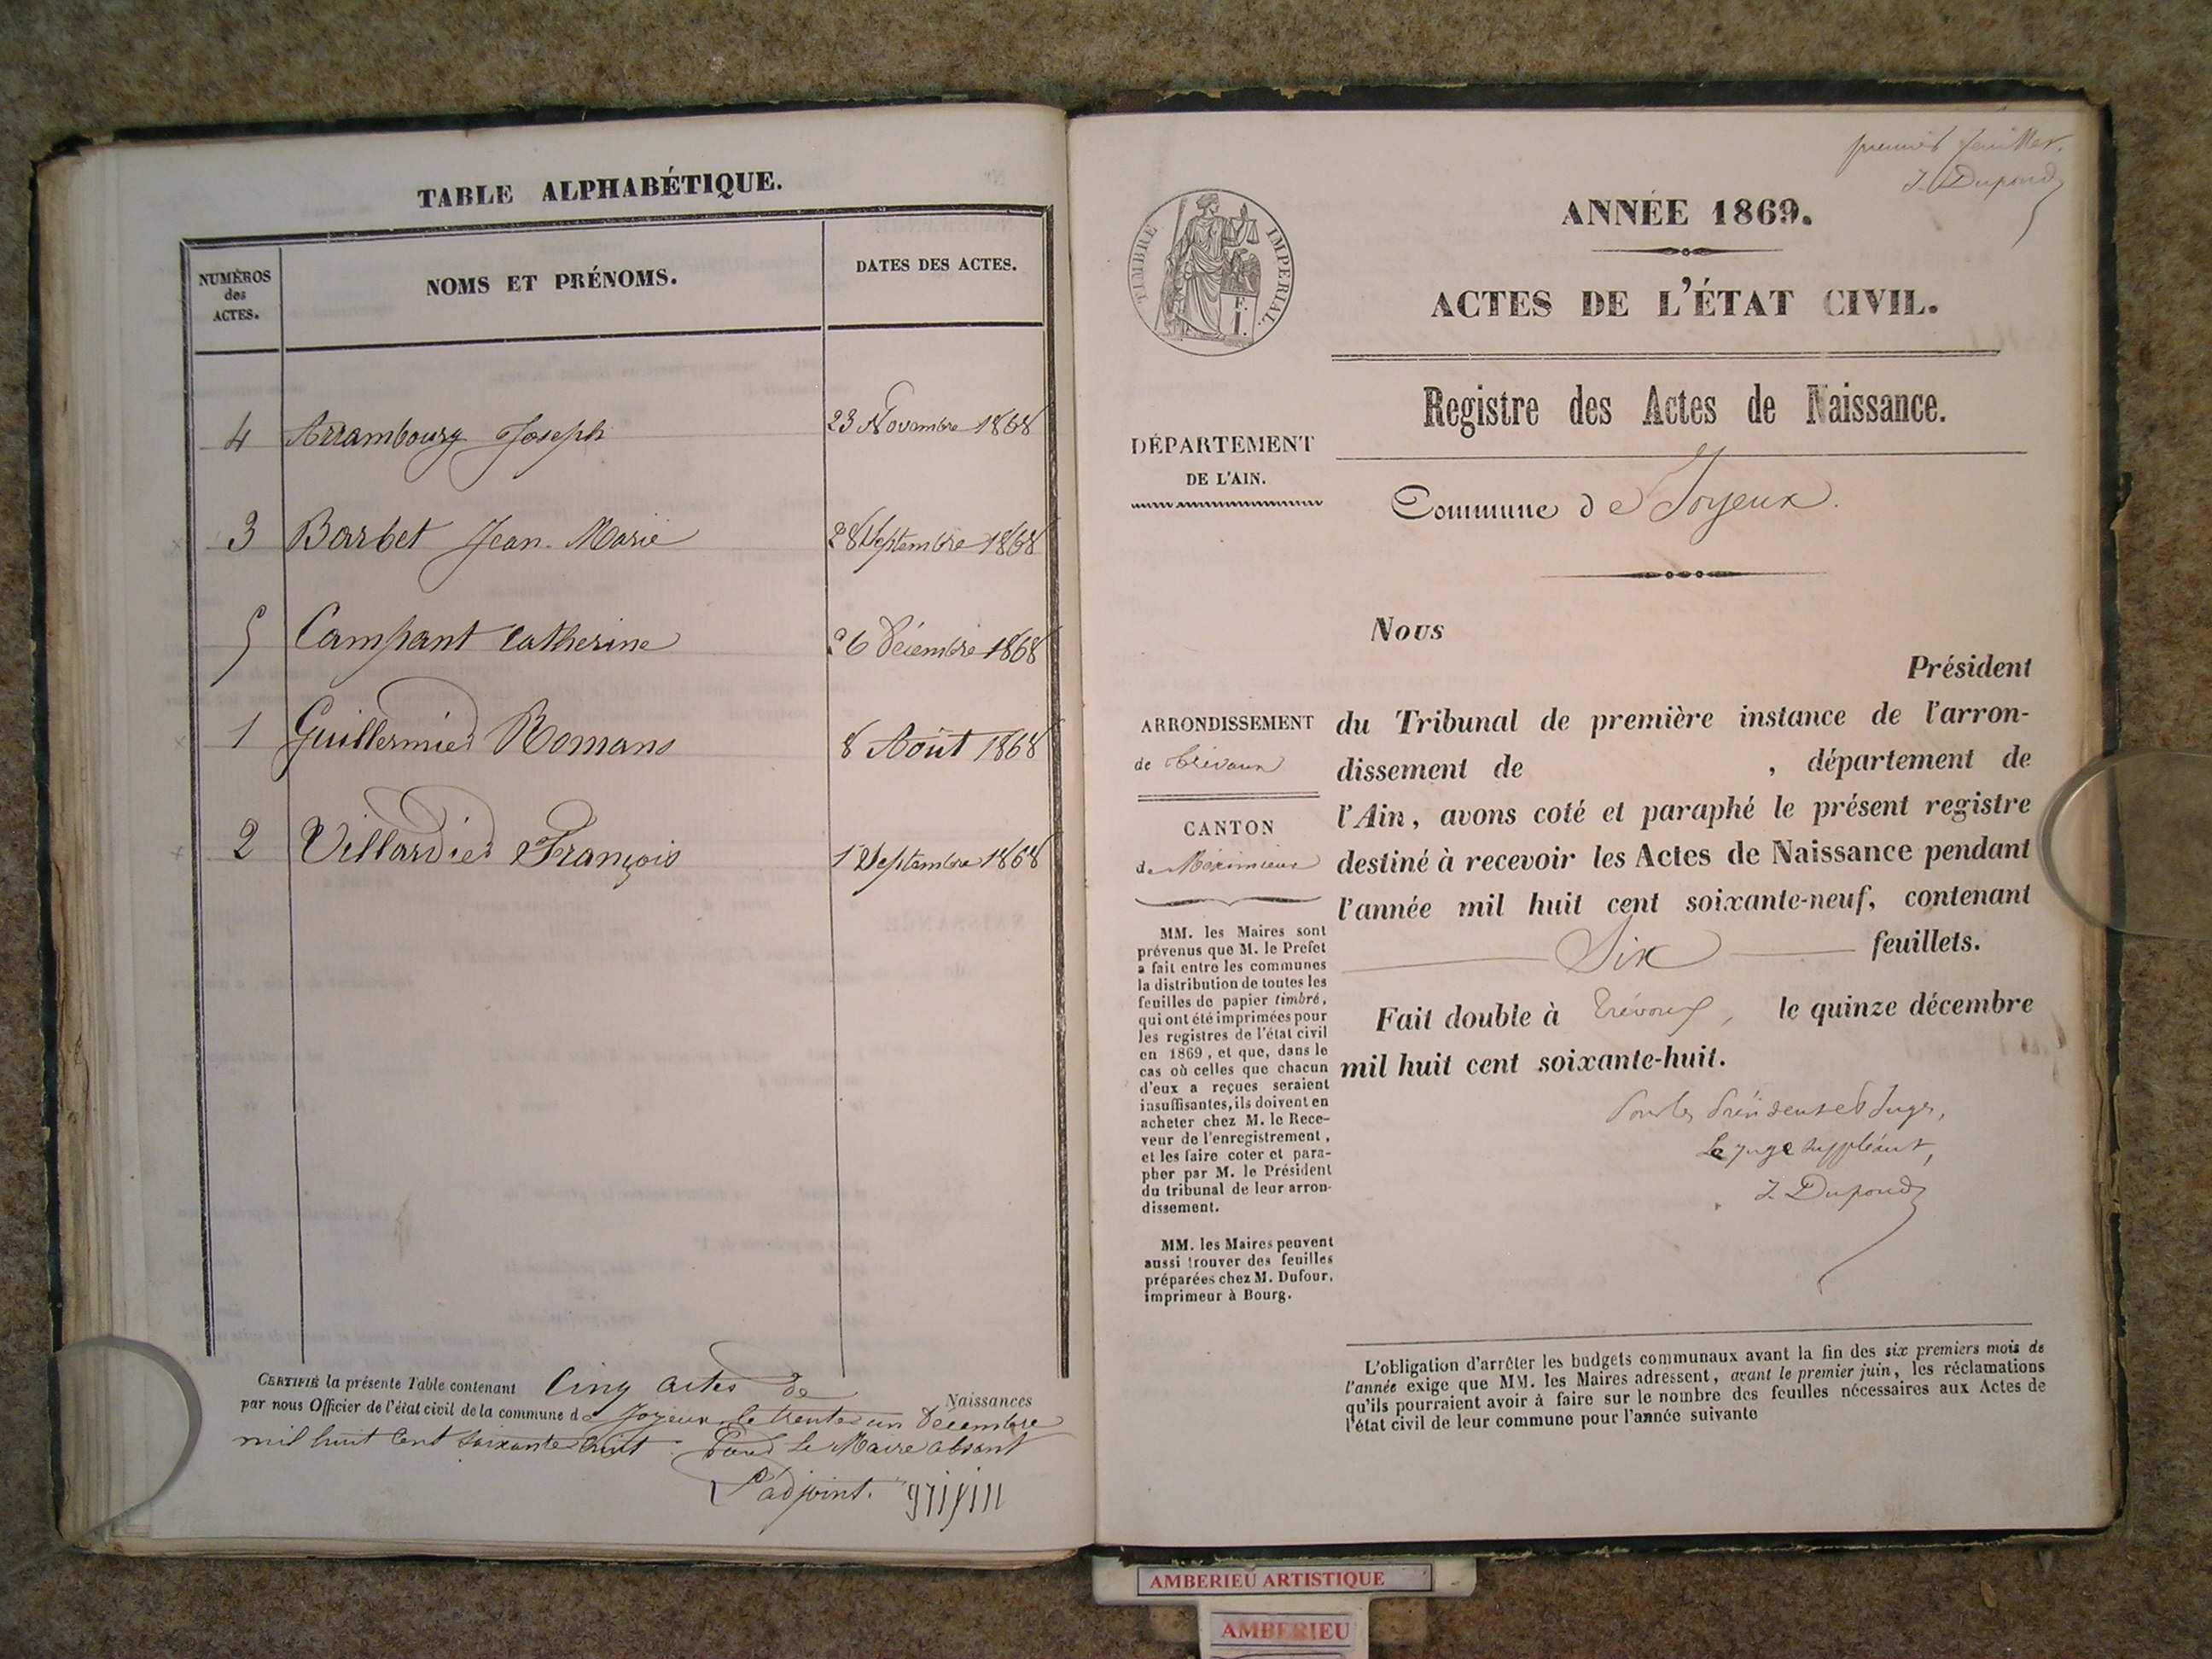 TABLE ALPHABÉTIQUE.
NUMÉROS
des
ACTES.
NOMS ET PRÉNOMS.
DATES DES ACTES.
4 Arrambourg Joseph 23 Novembre 1868
3 Barbet Jean-Marie 28 Septembre 1868
5 Campant Catherine 26 Décembre 1868
1 Guillermier Romans 8 Août 1868
2 Villardier François 1 Septembre 1868
CERTIFIÉ la présente Table contenant Cinq actes de Naissances
par nous Officier de l'état civil de la commune de Joyeux le trente un Décembre
mil huit Cent soixante huit Pour le Maire absent
L'adjoint.
premier feuillet.
J. Dupond
TIMBRE IMPERIAL.
ANNÉE 1869.
ACTES DE L'ÉTAT CIVIL.
Registre des Actes de Naissance.
DÉPARTEMENT
DE L'AIN.
Commune de Joyeux.
ARRONDISSEMENT
de Trévoux
CANTON
de Meximieux
MM. les Maires sont
prévenus que M. le Prefet
a fait entre les communes
la distribution de toutes les
feuilles de papier timbré,
qui ont été imprimées pour
les registres de l'état civil
en 1869, et que, dans le
cas où celles que chacun
d'eux a reçues seraient
insuffisantes, ils doivent en
acheter chez M. le Rece-
veur de l'enregistrement,
et les faire coter et para-
pher par M. le Président
du tribunal de leur arron-
dissement.
MM. les Maires peuvent
aussi trouver des feuilles
préparées chez M. Dufour,
imprimeur à Bourg.
Nous
Président
du Tribunal de première instance de l'arron-
dissement de , département de
l'Ain, avons coté et paraphé le présent registre
destiné à recevoir les Actes de Naissance pendant
l'année mil huit cent soixante-neuf, contenant
Six feuillets.
Fait double à Trévoux, le quinze décembre
mil huit cent soixante-huit.
Pour les Présidents et Juges,
Le juge suppléant,
J. Dupond
L'obligation d'arrêter les budgets communaux avant la fin des six premiers mois de
l'année exige que MM. les Maires adressent, avant le premier juin, les réclamations
qu'ils pourraient avoir à faire sur le nombre des feuilles nécessaires aux Actes de
l'état civil de leur commune pour l'année suivante
AMBERIEU ARTISTIQUE
AMBERIEU